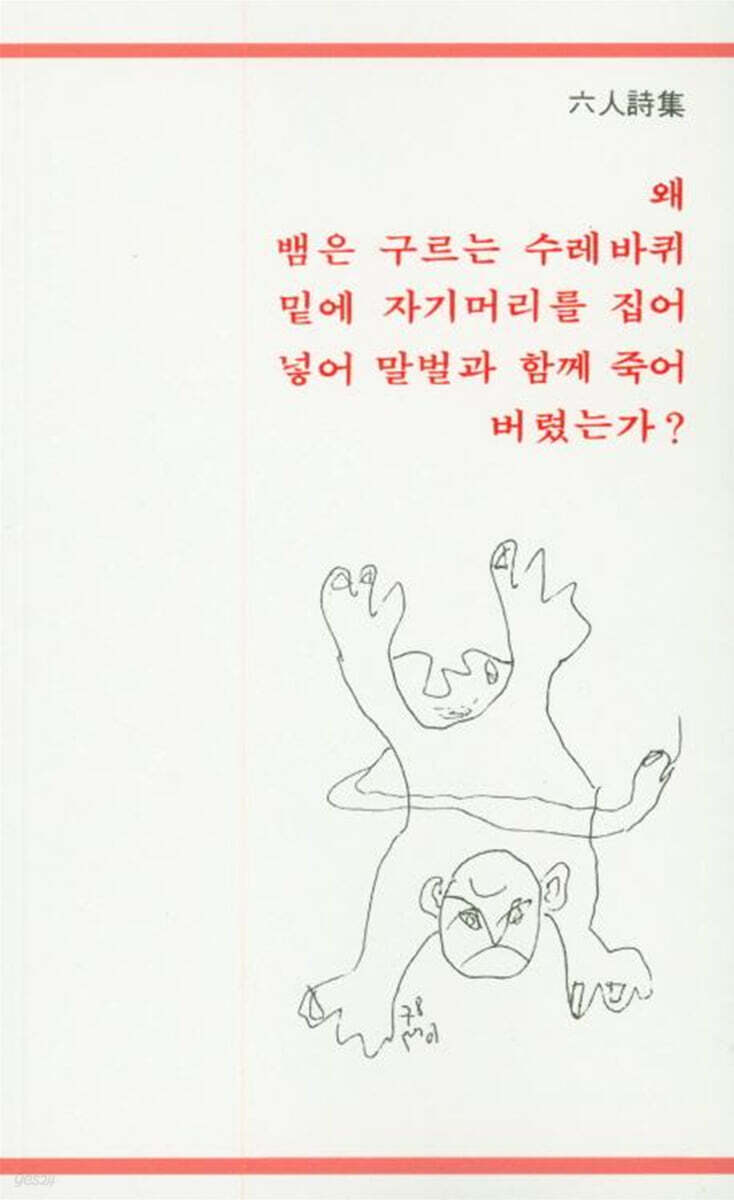 六人詩集
왜
뱀은 구르는 수레바퀴
밑에 자기머리를 집어
넣어 말벌과 함께 죽어
버렸는가?
yes24